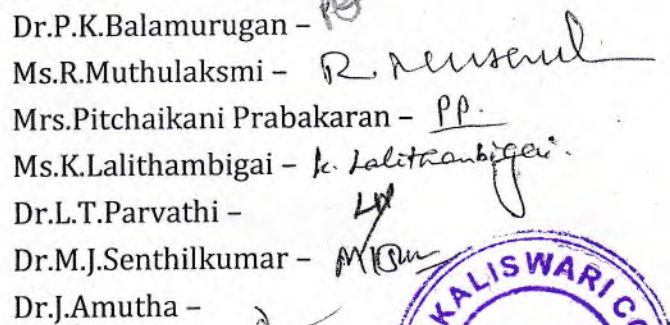 Dr.P.K.Balamurugan –
Ms.R.Muthulaksmi –
Mrs.Pitchaikani Prabakaran – PP.
Ms.K.Lalithambigai – K. Lalithambigai.
Dr.L.T.Parvathi –
Dr.M.J.Senthilkumar –
Dr.J.Amutha –
KALISWARI CO